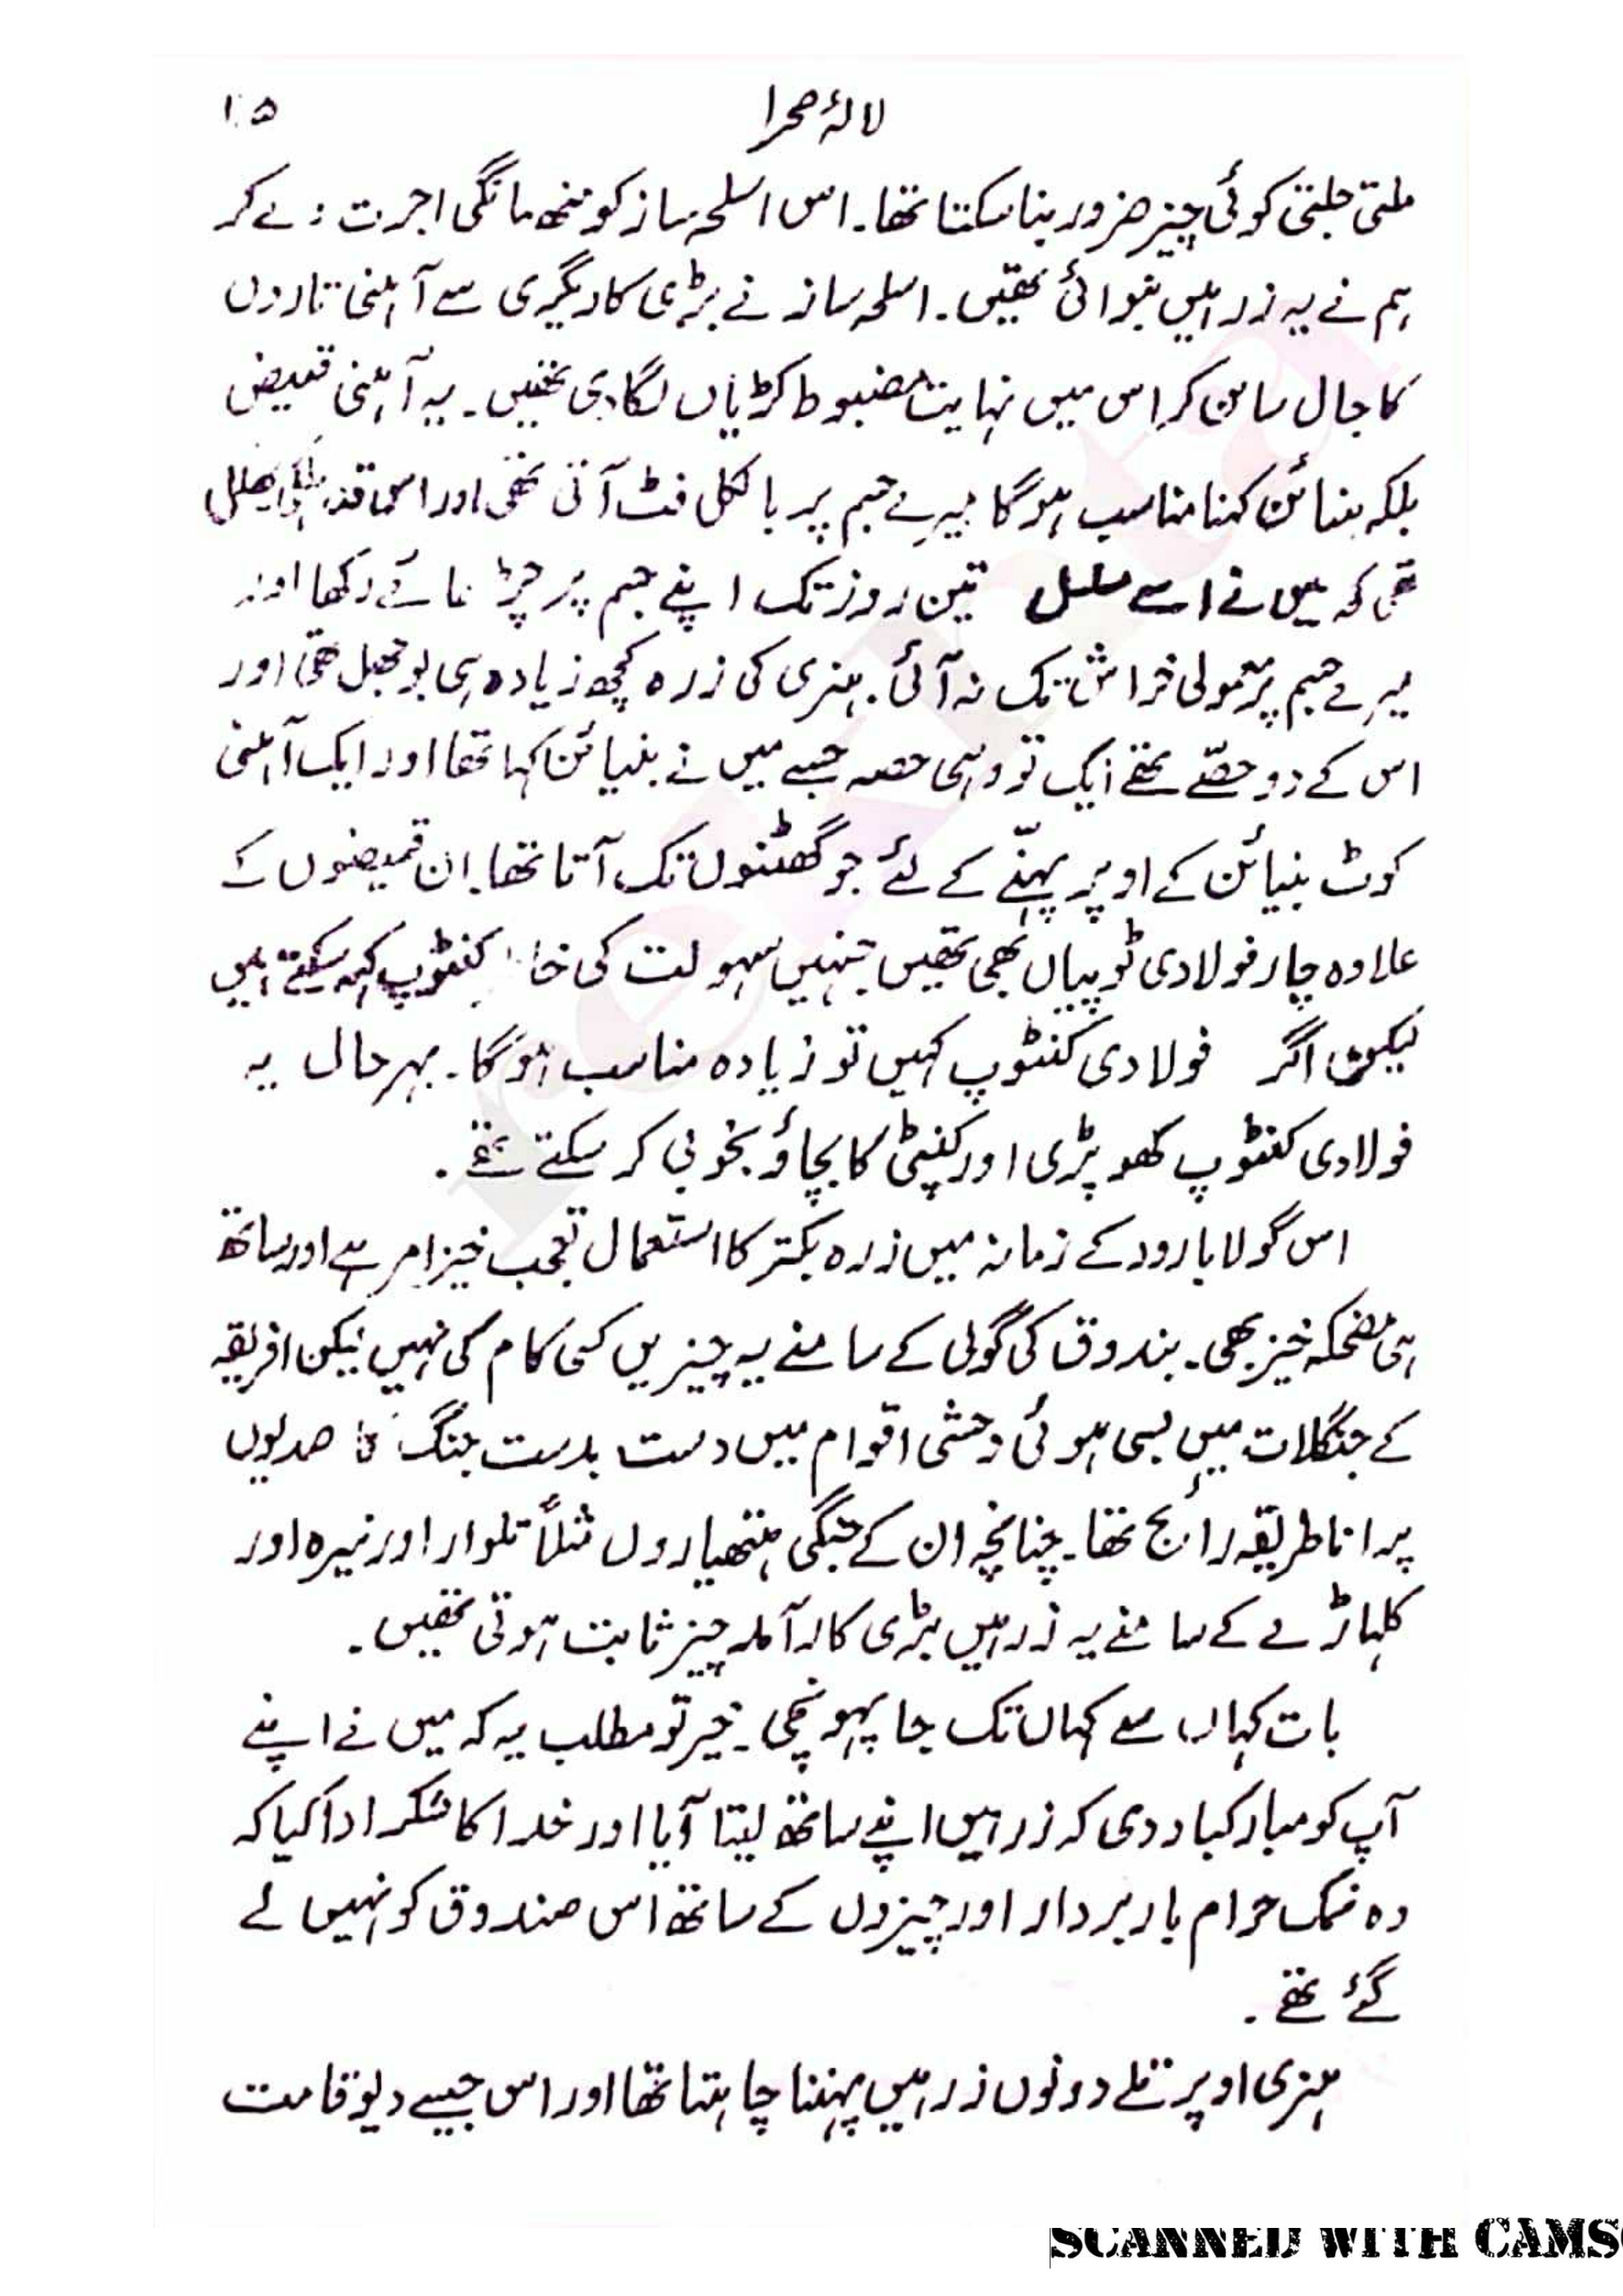 لالۂ صحرا
۱۰۵
ملتی جلتی کوئی چیز ضرور بنا سکتا تھا۔ اس اسلحہ ساز کو منھ مانگی اجرت دے کر
ہم نے یہ زرہیں بنوائی تھیں۔ اسلحہ ساز نے بڑی کاریگری سے آہنی تاروں
کا جال سا بن کر اس میں نہایت مضبوط کڑیاں لگا دی تھیں۔ یہ آہنی قمیض
بلکہ بنیائن کہنا مناسب ہوگا میرے جسم پر بالکل فٹ آتی تھی اور اس قدر ہلکی پھلکی
تھی کہ میں نے اسے مسلسل تین روز تک اپنے جسم پر چڑھائے رکھا اور
میرے جسم پر معمولی خراش تک نہ آئی۔ ہنری کی زرہ کچھ زیادہ ہی بوجھل تھی اور
اس کے دو حصّے تھے ایک تو وہی حصہ جسے میں نے بنیائن کہا تھا اور ایک آہنی
کوٹ بنیائن کے اوپر پہننے کے لئے جو گھٹنوں تک آتا تھا۔ ان قمیضوں کے
علاوہ چار فولادی ٹوپیاں بھی تھیں جنہیں سہولت کی خا کنٹوپ کہہ سکتے ہیں
لیکن اگر فولادی کنٹوپ کہیں تو زیادہ مناسب ہوگا۔ بہرحال یہ
فولادی کنٹوپ کھوپڑی اور کنپٹی کا بچاؤ بخوبی کر سکتے تھے۔
اس گولا بارود کے زمانہ میں زرہ بکتر کا استعمال تعجب خیز امر ہے اور ساتھ
ہی مضحکہ خیز بھی۔ بندوق کی گولی کے سامنے یہ چیزیں کسی کام کی نہیں لیکن افریقہ
کے جنگلات میں بسی ہوئی وحشی اقوام میں دست بدست جنگ کا صدیوں
پرانا طریقہ رائج تھا۔ چنانچہ ان کے جنگی ہتھیاروں مثلاً تلوار اور نیزہ اور
کلہاڑے کے سامنے یہ زرہیں بڑی کارآمد چیز ثابت ہوتی تھیں۔
بات کہاں سے کہاں تک جا پہونچی۔ خیر تو مطلب یہ کہ میں نے اپنے
آپ کو مبارکباد دی کہ زرہیں اپنے ساتھ لیتا آیا اور خدا کا شکر ادا کیا کہ
وہ نمک حرام باربردار اور چیزوں کے ساتھ اس صندوق کو نہیں لے
گئے تھے۔
ہنری اوپر تلے دونوں زرہیں پہننا چاہتا تھا اور اس جیسے دیوقامت
SCANNED WITH CAMS